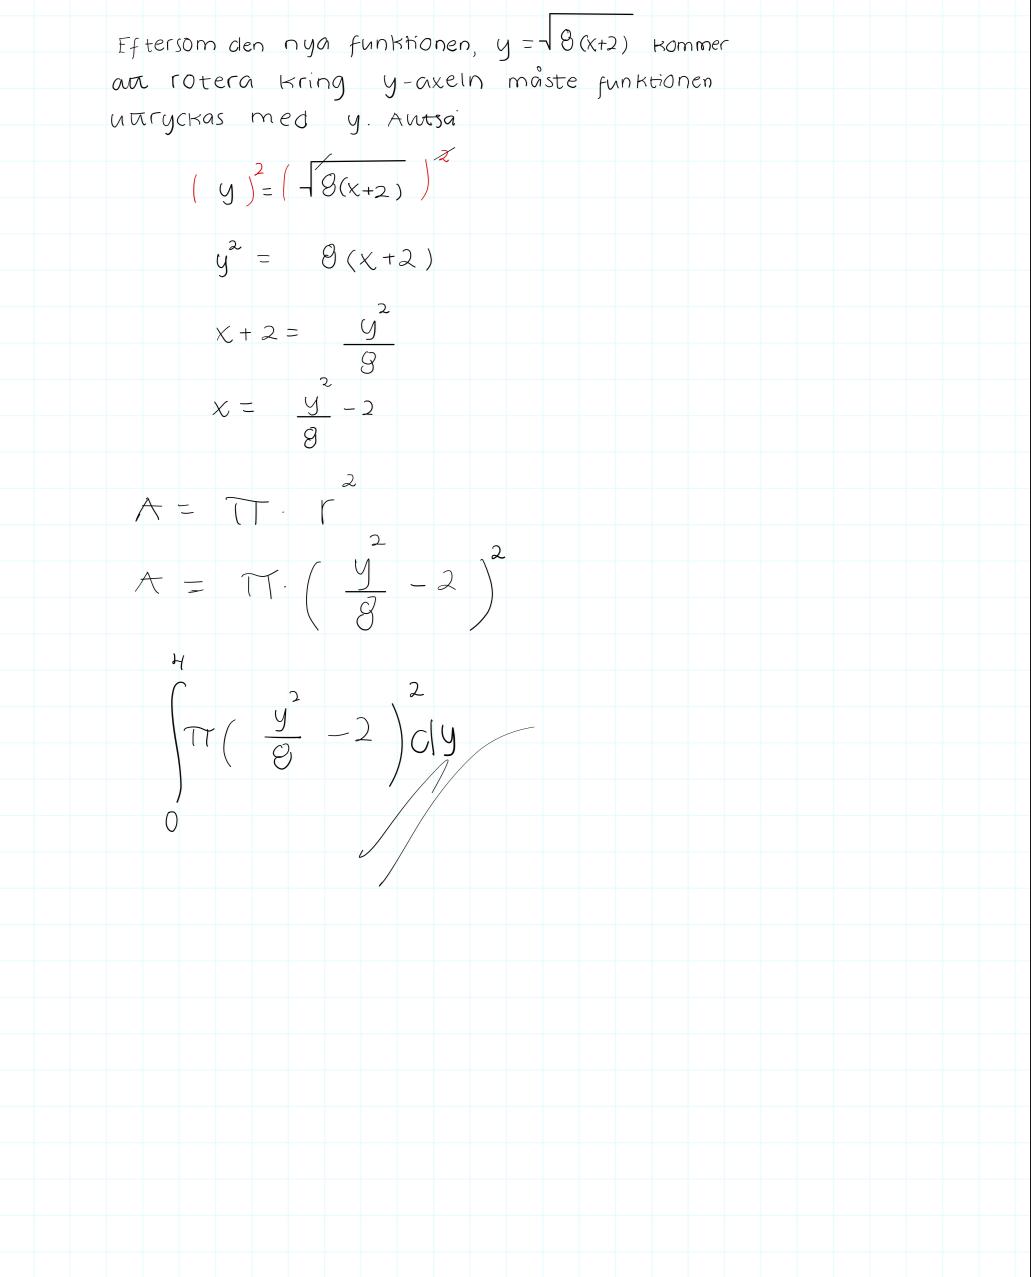 Eftersom den nya funktionen, y = √8(x+2) kommer
att rotera kring y-axeln måste funktionen
uttryckas med y. Alltså
( y )² = ( √8(x+2) )²
y² = 8(x+2)
x + 2 = y²/8
x = y²/8 - 2
A = π · r²
A = π · ( y²/8 - 2 )²
∫₀⁴ π ( y²/8 - 2 )² dy